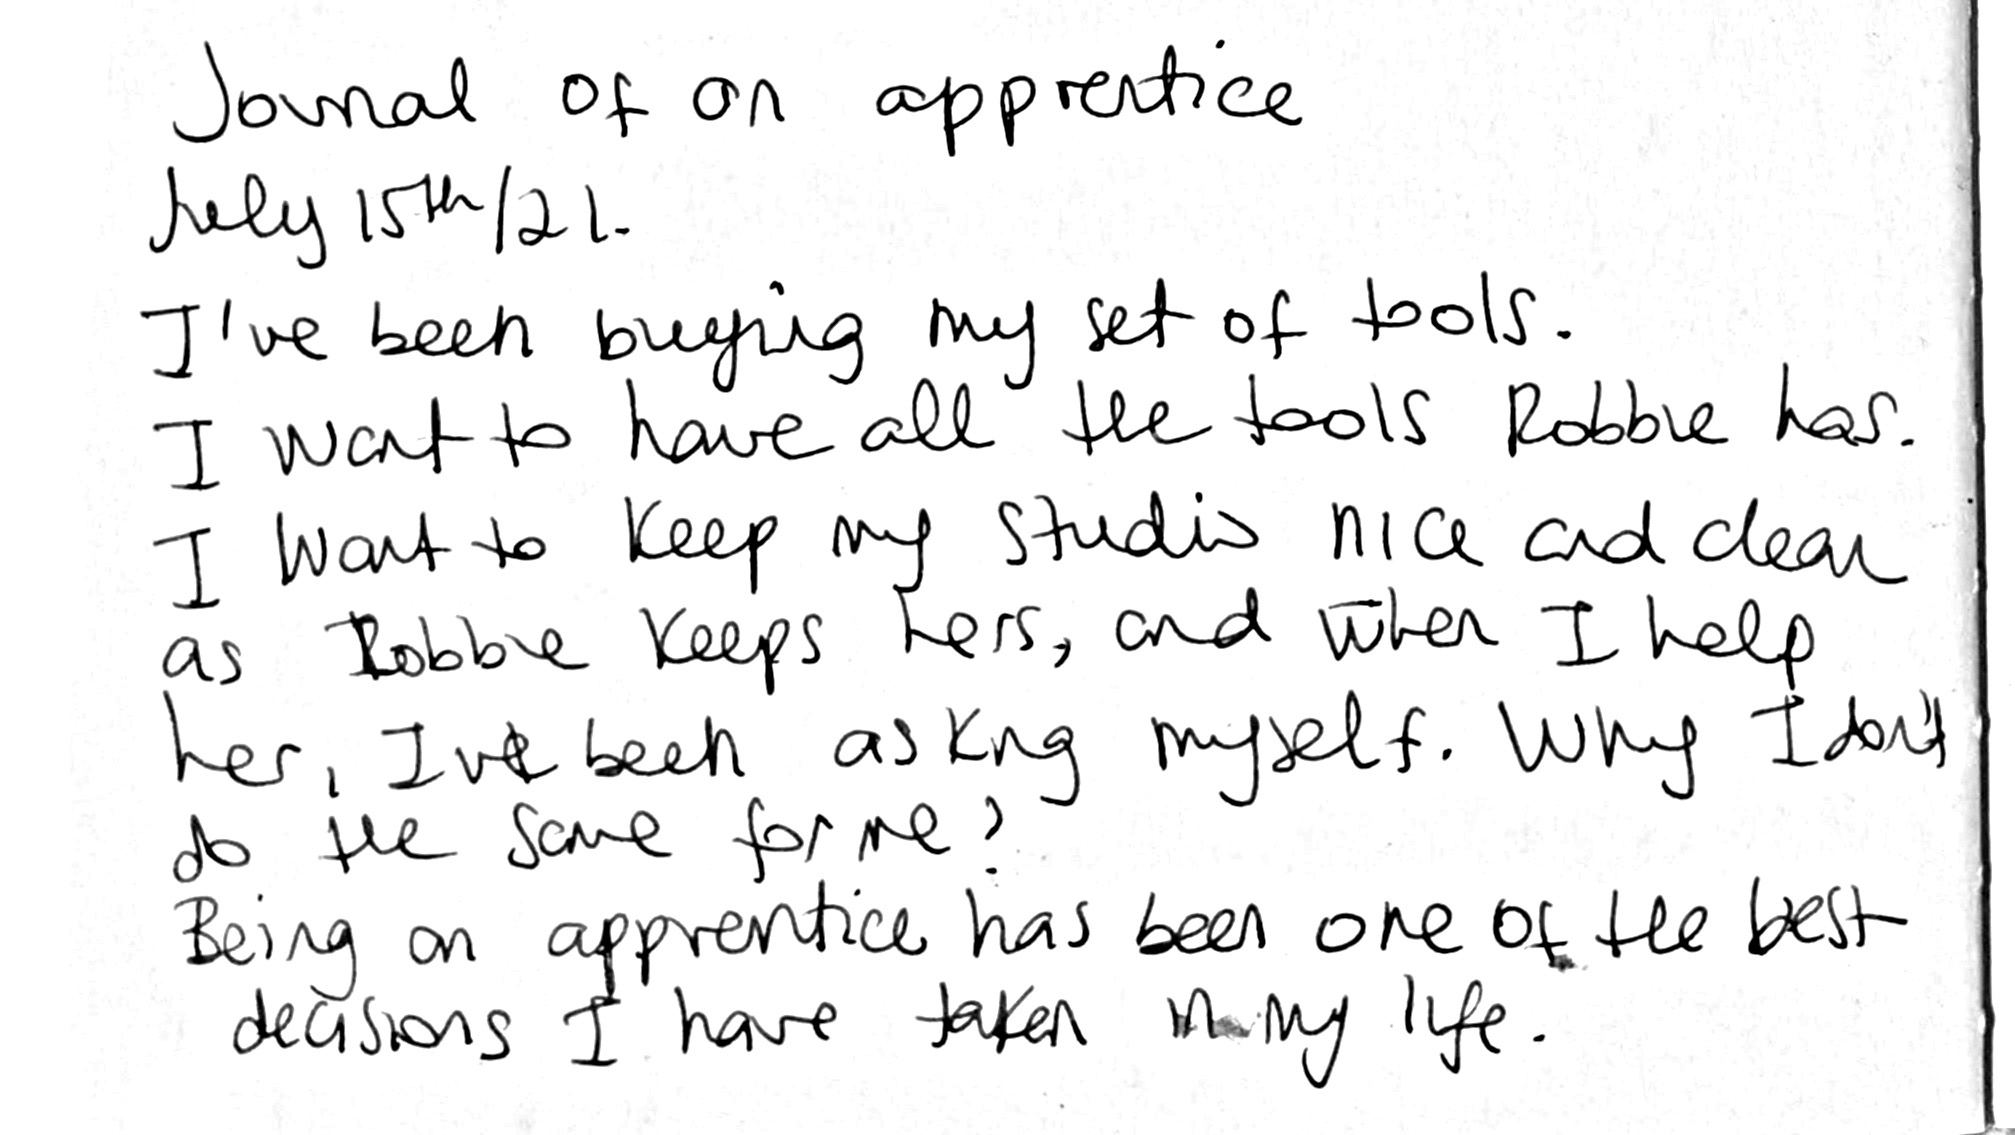 Journal of an apprentice
July 15th/21.
I've been buying my set of tools.
I want to have all the tools Robbie has.
I want to keep my studio nice and clean
as Robbie keeps hers, and when I help
her, I've been asking myself. Why I don't
do the same for me?
Being an apprentice has been one of the best
decisions I have taken in my life.